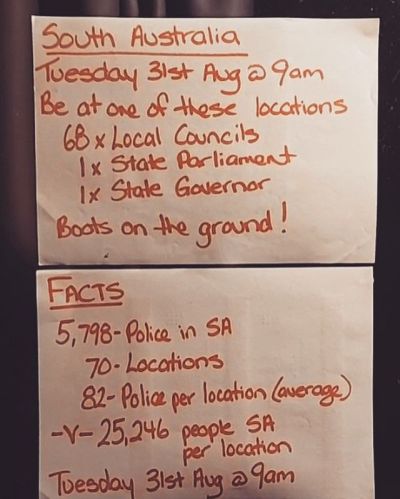 South Australia
Tuesday 31st Aug @ 9am
Be at one of these locations
68 x Local Councils
1x State Parliament
1x State Governor
Boots on the ground!
FACTS
5,798- Police in SA
70- Locations
82- Police per location (average)
-V- 25,246 people SA
per location
Tuesday 31st Aug @ 9am